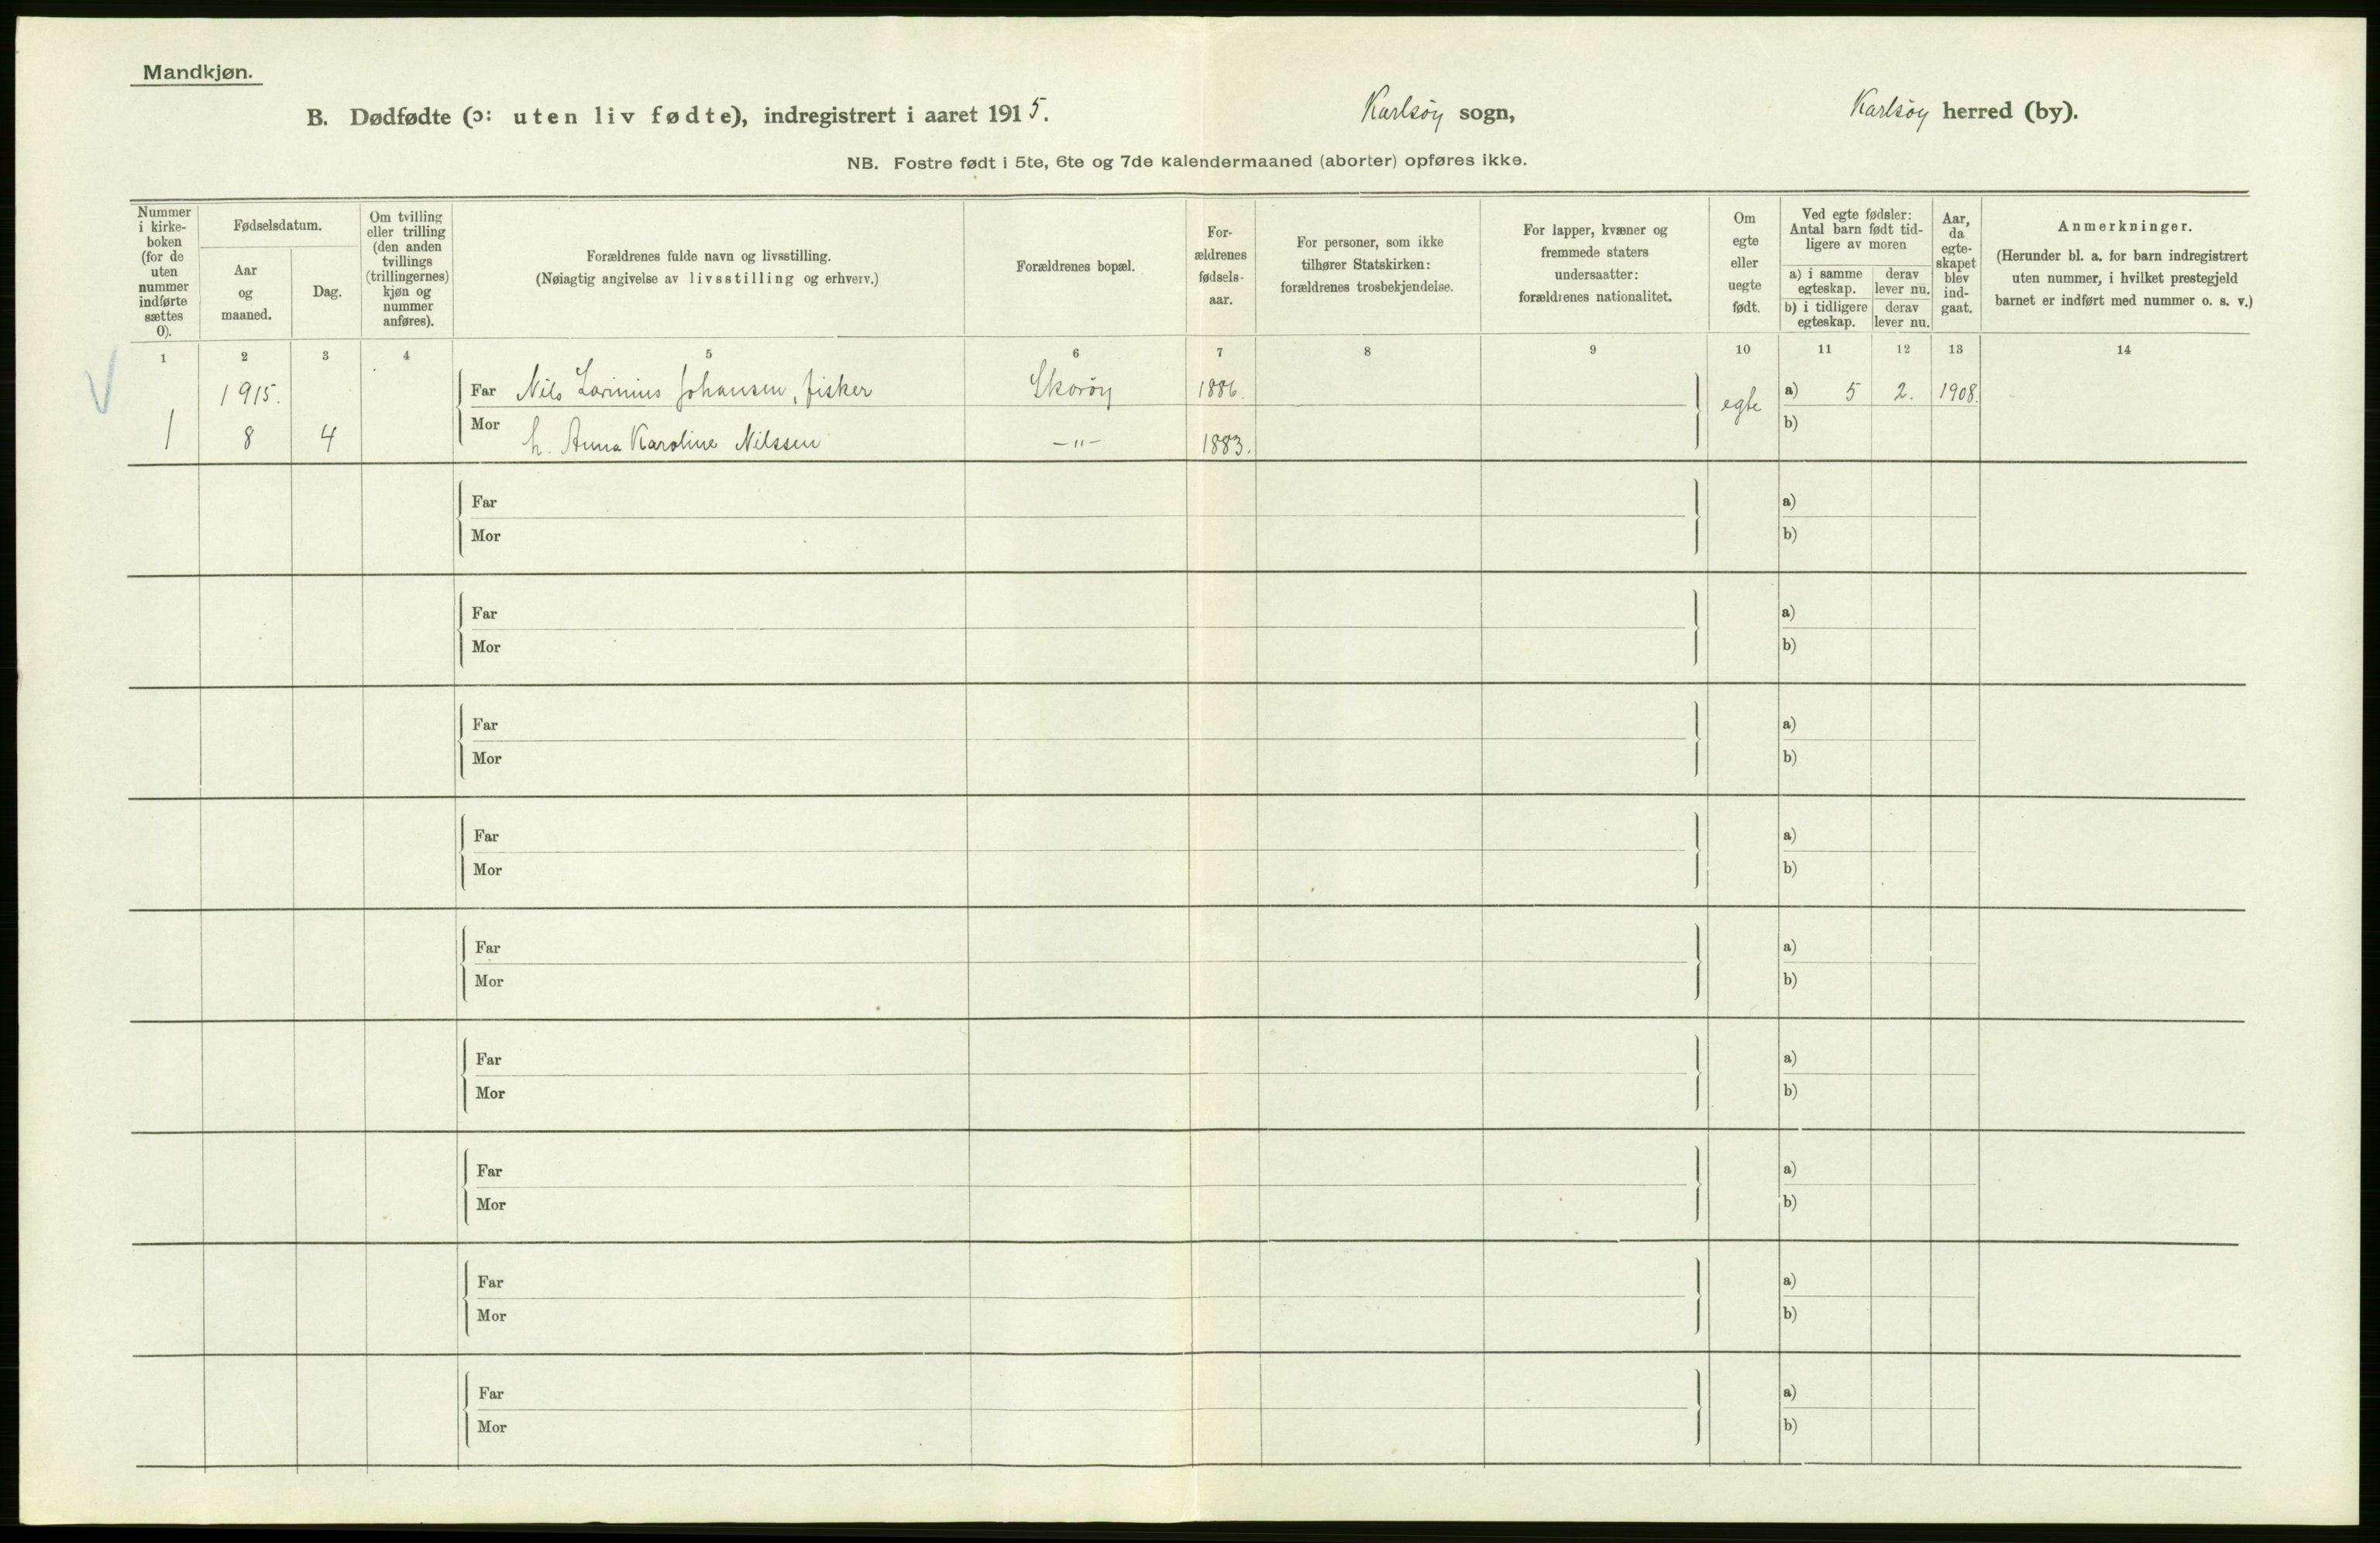 Mandkjøn.
B. Dødfødte (ɔ: uten liv fødte), indregistrert i aaret 1915. Karlsöy sogn, Karlsöy herred (by).
NB. Fostre født i 5te, 6te og 7de kalendermaaned (aborter) opføres ikke.
Nummer
i kirke-
boken
(for de
uten
nummer
indførte
sættes
0).
Fødselsdatum.
Aar
og
maaned.
Dag.
Om tvilling
eller trilling
(den anden
tvillings
(trillingernes)
kjøn og
nummer
anføres).
Forældrenes fulde navn og livsstilling.
(Nøiagtig angivelse av livsstilling og erhverv.)
Forældrenes bopæl.
For-
ældrenes
fødsels-
aar.
For personer, som ikke
tilhører Statskirken:
forældrenes trosbekjendelse.
For lapper, kvæner og
fremmede staters
undersaatter:
forældrenes nationalitet.
Om
egte
eller
uegte
født.
Ved egte fødsler:
Antal barn født tid-
ligere av moren
a) i samme
egteskap.
derav
lever nu.
b) i tidligere
egteskap.
derav
lever nu.
Aar,
da
egte-
skapet
blev
ind-
gaat.
Anmerkninger.
(Herunder bl. a. for barn indregistrert
uten nummer, i hvilket prestegjeld
barnet er indført med nummer o. s. v.)
1 2 3 4 5 6 7 8 9 10 11 12 13 14
1915. Far Nils Larinius Johansen, fisker Skoröy 1886. egte a) 5 2. 1908.
1 8 4 Mor h. Anna Karoline Nilssen -"- 1883. b)
Far a)
Mor b)
Far a)
Mor b)
Far a)
Mor b)
Far a)
Mor b)
Far a)
Mor b)
Far a)
Mor b)
Far a)
Mor b)
Far a)
Mor b)
Far a)
Mor b)